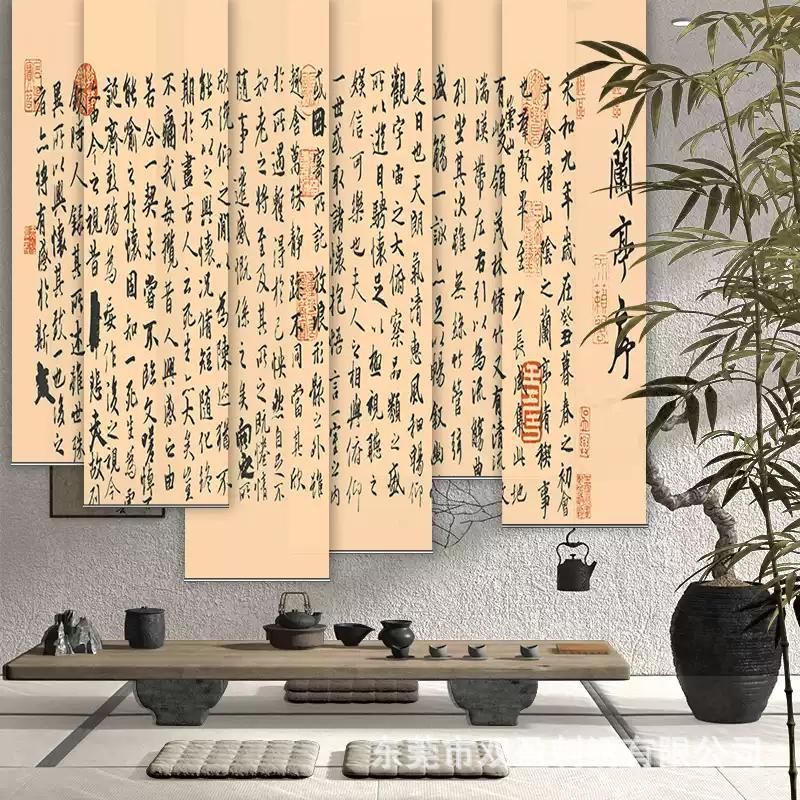 蘭亭序
永和九年歲在癸丑暮春之初會
于會稽山陰之蘭亭脩禊事
也群賢畢至少長咸集此地
有崇山峻領茂林脩竹又有清流激
湍暎帶左右引以為流觴曲
列坐其次雖無絲竹管弦
盛一觴一詠亦足以暢叙幽
是日也天朗氣清惠風和暢仰
觀宇宙之大俯察品類之盛
所以遊目騁懷足以極視聽之
娛信可樂也夫人之相與俯仰
一世或取諸懷抱悟言一室之內
或因寄所託放浪形骸之外雖
趣舍萬殊靜躁不同當其欣
於所遇蹔得於己怏然自足不
知老之將至及其所之既惓情
隨事遷感慨係之矣向之所
欣俛仰之閒以為陳迹猶不
能不以之興懷況脩短隨化終
期於盡古人云死生亦大矣豈
不痛哉每攬昔人興感之由
若合一契未嘗不臨文嗟悼
能喻之於懷固知一死生為虛
誕齊彭殤為妄作後之視今
今之視昔悲夫故列
叙時人錄其所述雖世殊
異所以興懷其致一也後之
者亦將有感於斯文
东莞市双盈制有限公司